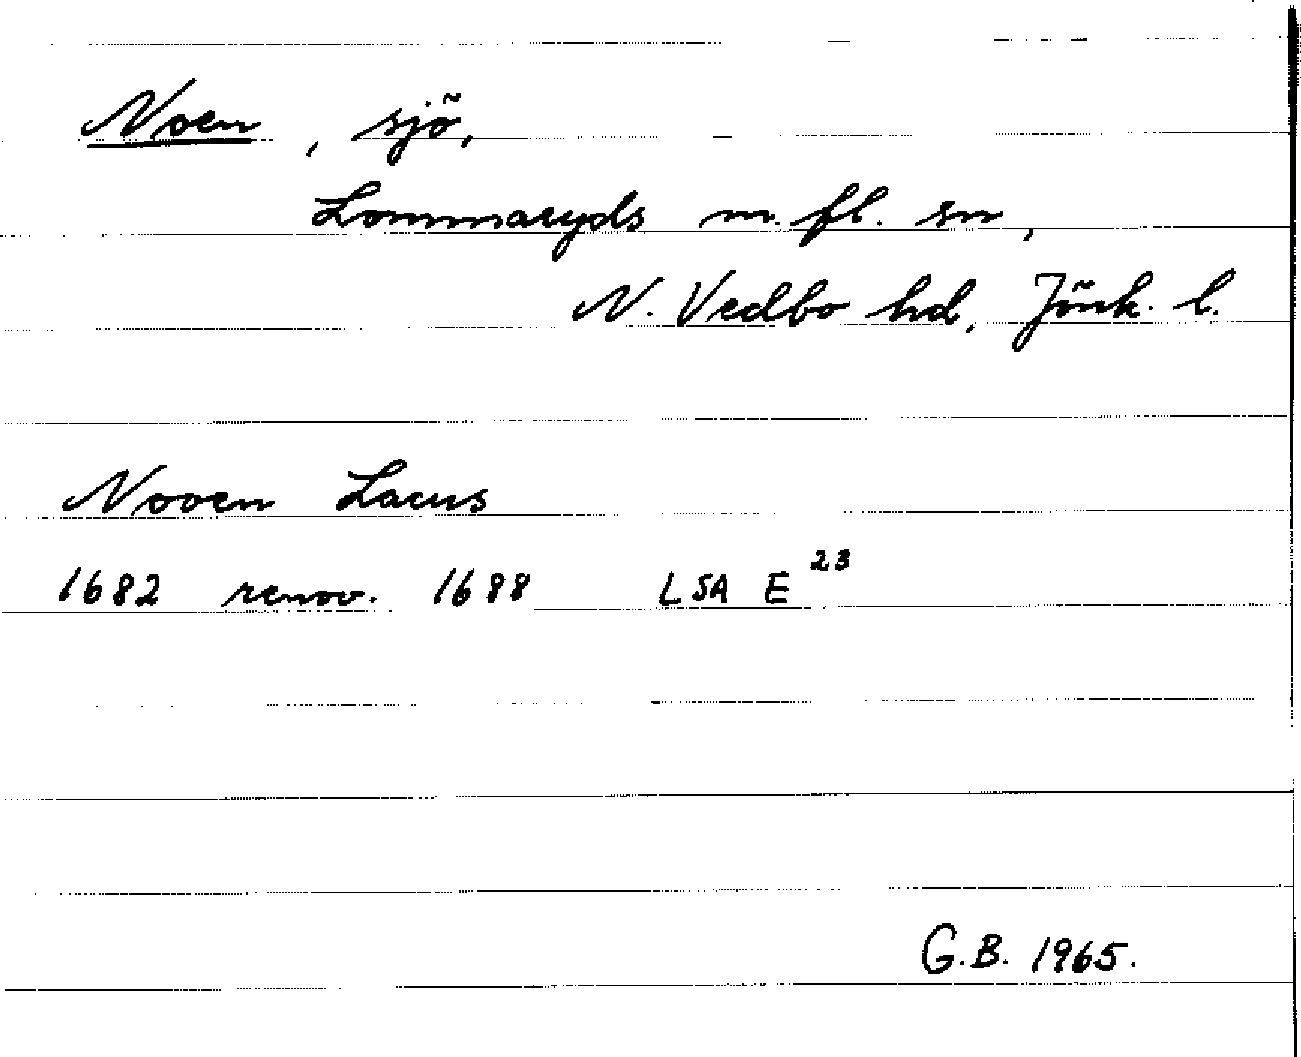 Noen, sjö,
Lommaryds m. fl. sn,
N. Vedbo hd, Jönk. l.
Nooen Lacus
1682 renov. 1688 LSA E²³
G.B. 1965.